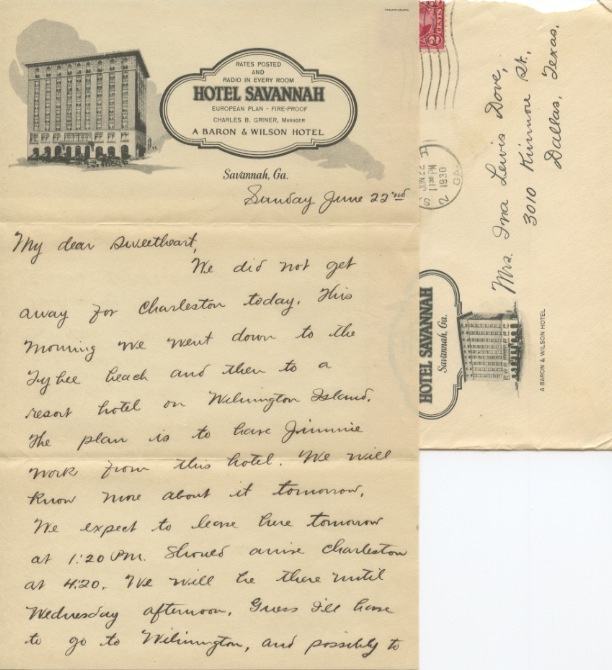 RATES POSTED
AND
RADIO IN EVERY ROOM
HOTEL SAVANNAH
EUROPEAN PLAN - FIRE-PROOF
CHARLES B. GRINER, MANAGER
A BARON & WILSON HOTEL
Savannah, Ga.
Sunday June 22nd
My dear sweetheart,
We did not get
away for Charleston today. This
morning we went down to the
Tybee beach and then to a
resort hotel on Wilmington Island.
The plan is to have Jimmie
work from this hotel. We will
know more about it tomorrow.
We expect to leave here tomorrow
at 1:20 P.M. Should arrive Charleston
at 4:20. We will be there until
Wednesday afternoon. Guess I'll have
to go to Wilmington, and possibly to
2 CENTS 2
JUN 22
1930
GA.
Mrs. Ina Lewis Dove,
3010 Kinmore St,
Dallas, Texas.
HOTEL SAVANNAH
Savannah, Ga.
A BARON & WILSON HOTEL